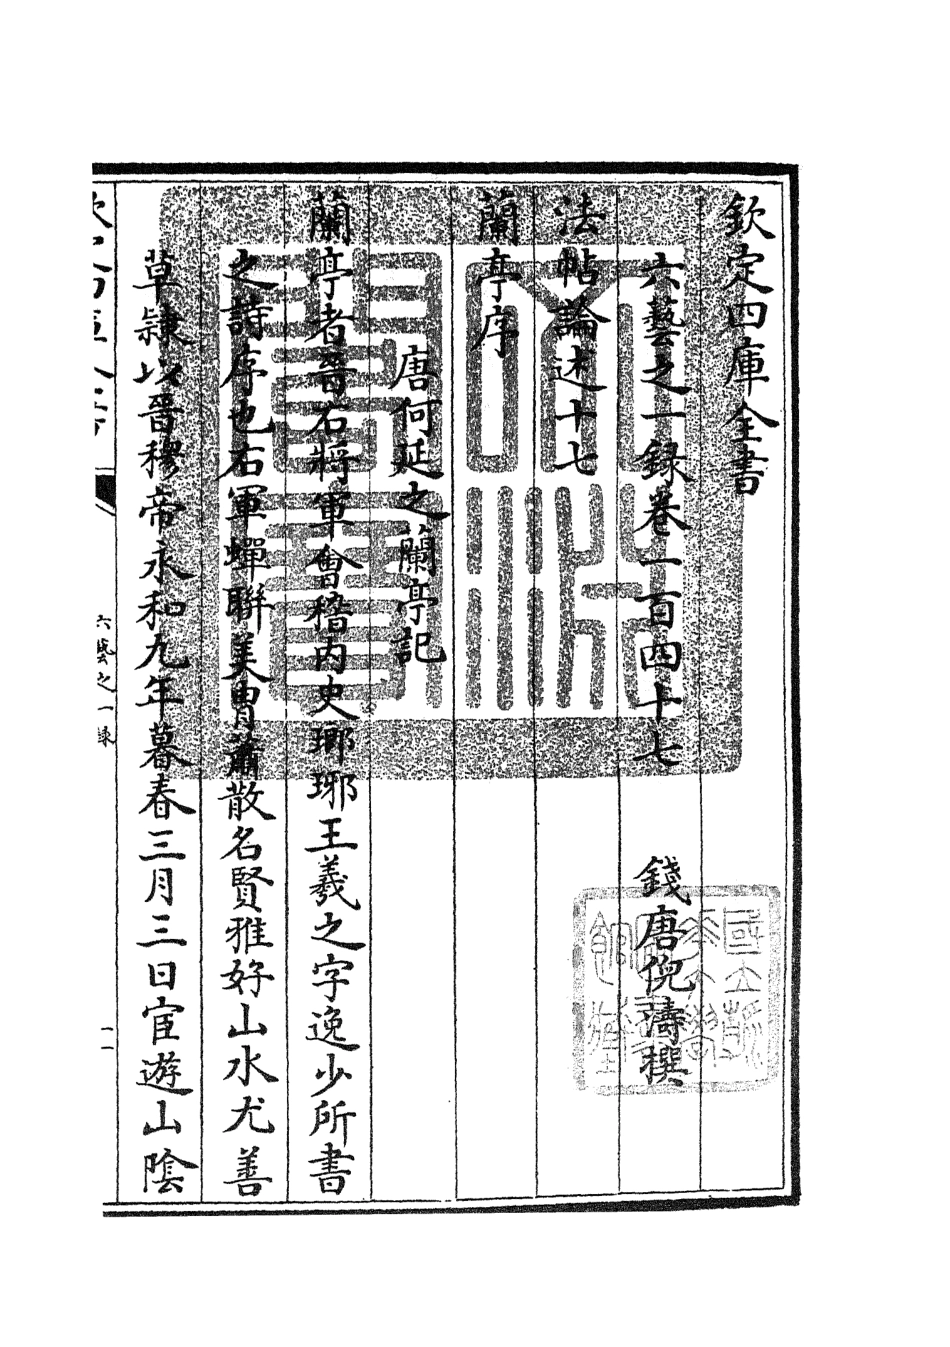 欽定四庫全書
六藝之一録卷一百四十七
錢唐倪濤撰
法帖論述十七
蘭亭序
唐何延之蘭亭記
蘭亭者晉右將軍會稽内史瑯琊王羲之字逸少所書
之詩序也右軍蟬聯美胄蕭散名賢雅好山水尤善
草隷以晉穆帝永和九年暮春三月三日宦遊山陰
六藝之一録